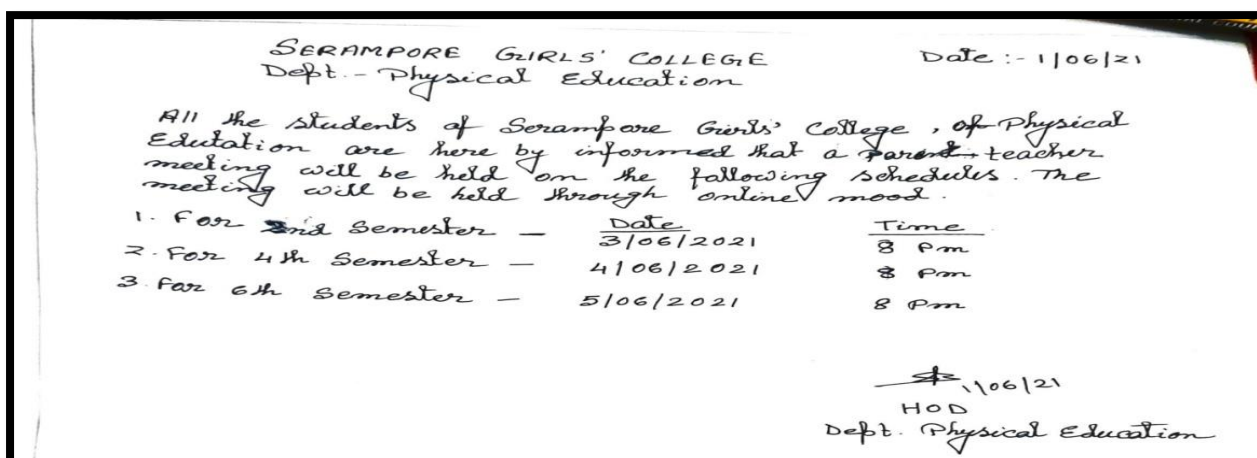 SERAMPORE GIRLS' COLLEGE Date :- 1/06/21
Dept.- Physical Education
All the students of Serampore Girls' College, of Physical
Edutation are here by informed that a parent-teacher
meeting will be held on the following schedules. The
meeting will be held through online mood.
Date Time
1. For 2nd Semester — 3/06/2021 8 Pm
2. For 4th Semester — 4/06/2021 8 Pm
3. For 6th Semester — 5/06/2021 8 Pm
1/06/21
HOD
Dept. Physical Education